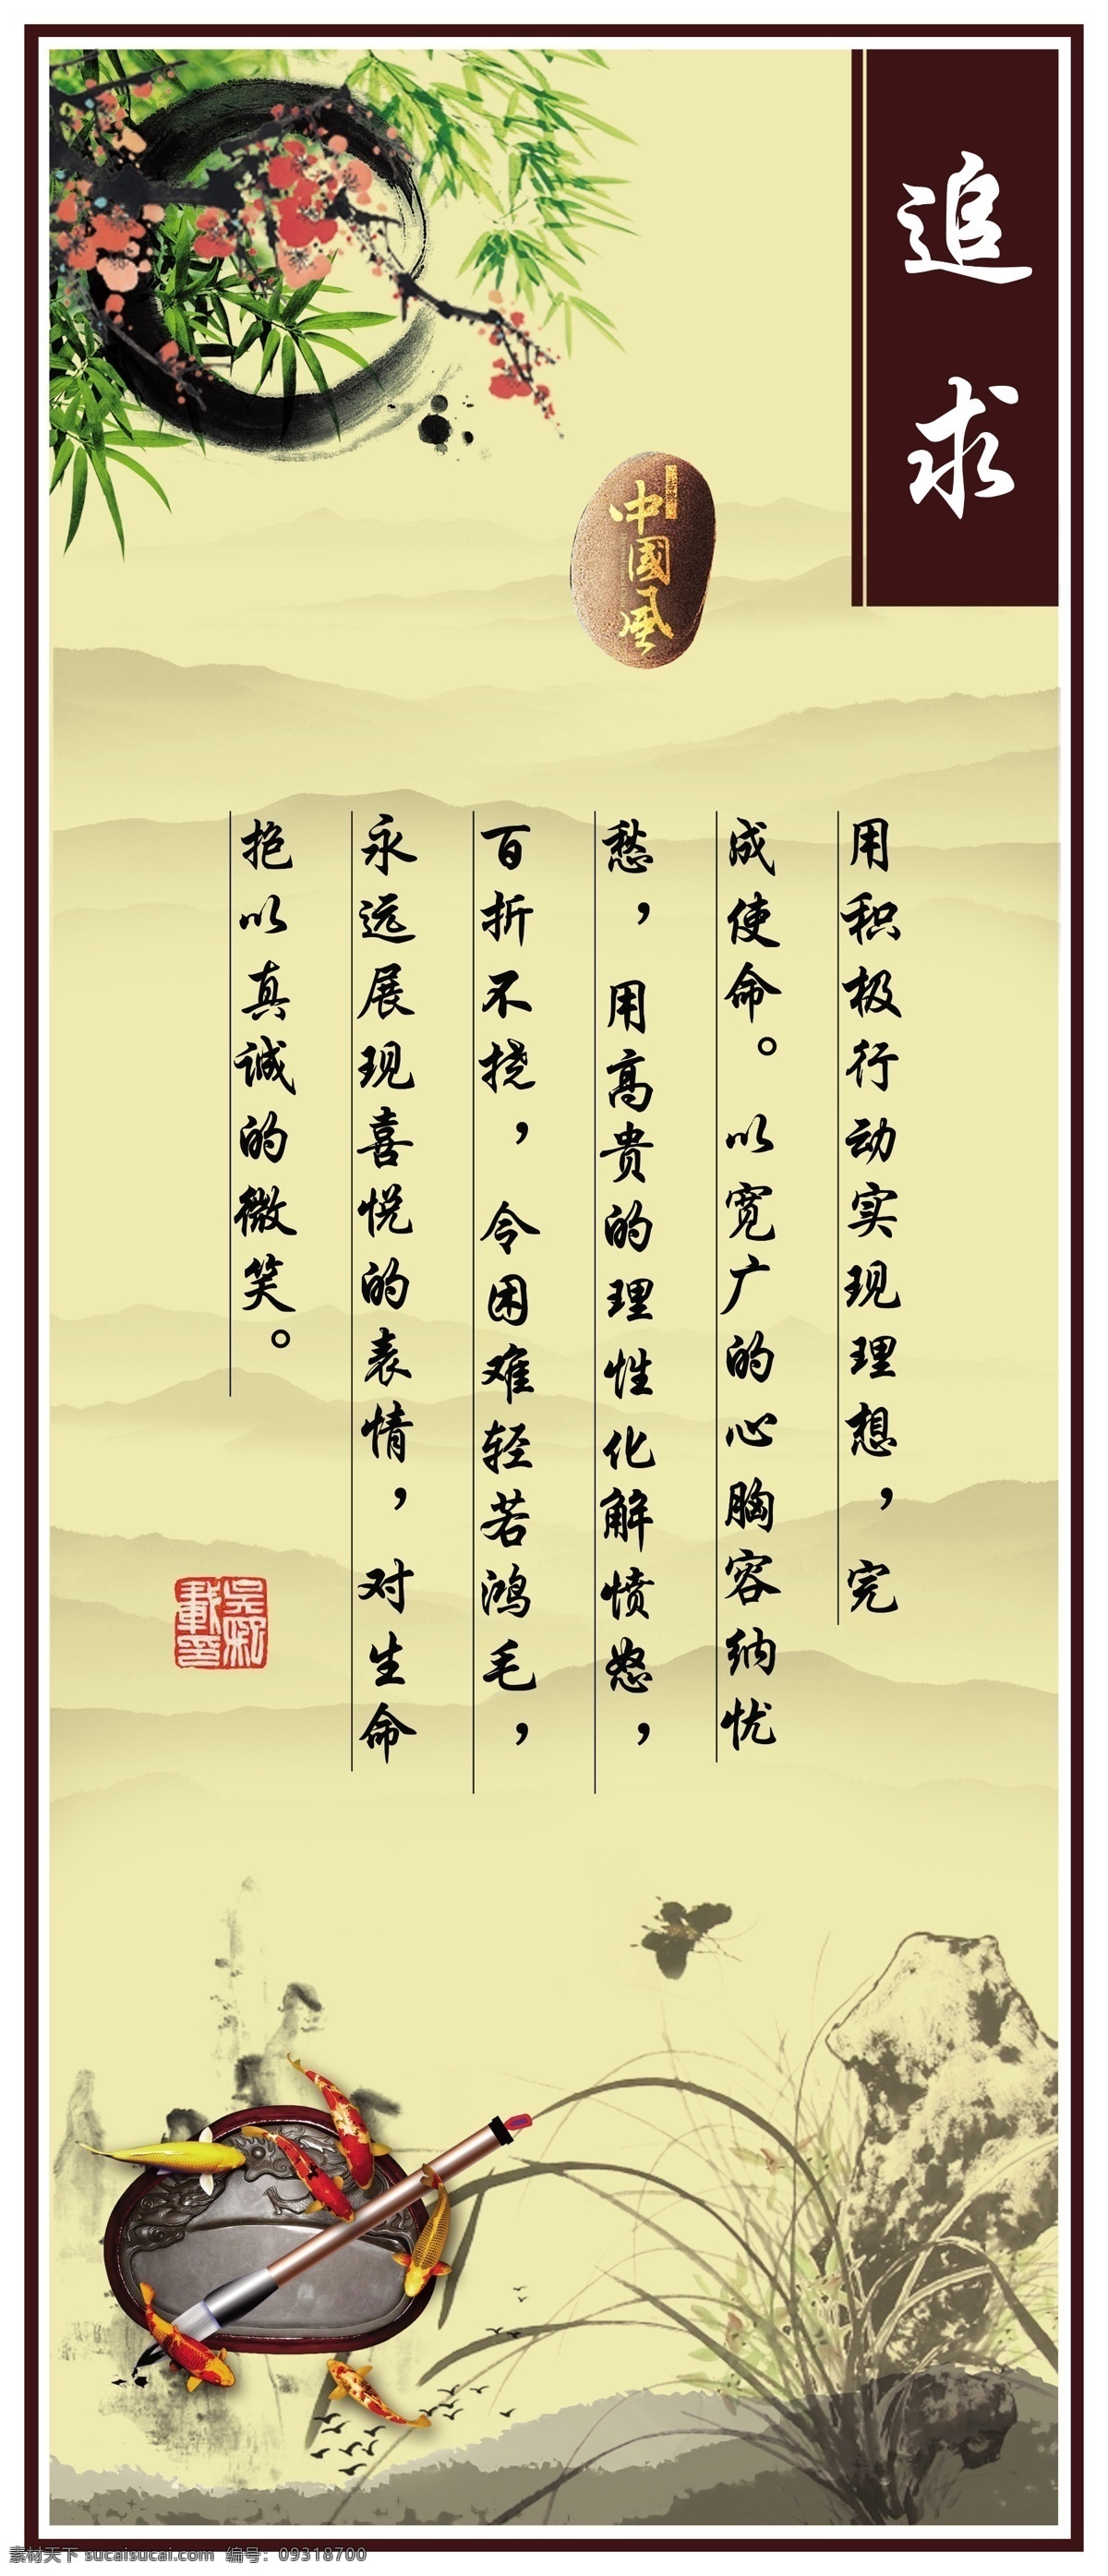 追求
中國風
用积极行动实现理想，完
成使命。以宽广的心胸容纳忧
愁，用高贵的理性化解愤怒，
百折不挠，令困难轻若鸿毛，
永远展现喜悦的表情，对生命
抱以真诚的微笑。
素材天下 sucaisucai.com 编号：09318700